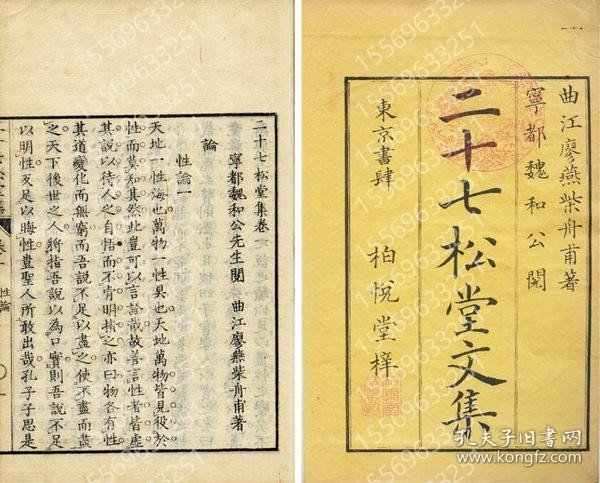 曲江廖燕柴舟甫著
寧都魏和公閱
二十七松堂文集
東京書肆
柏悅堂梓
二十七松堂集卷一
寧都魏和公先生閱
曲江廖燕柴舟甫著
論
性論一
天地一性海也萬物一性具也天地萬物皆見役於
性而莫知其然此豈可以言詮哉故善言性者皆虛
其說以待人之自悟而不肯明指之亦曰物各有性
其道變化而無窮而吾說不足以盡之使不盡而盡
之天下後世之人將指吾說以為口實則吾說不足
以明性反足以晦性豈聖人所敢出哉孔子子思是
性論
15569633251
15569633251
15569633251
15569633251
15569633251
15569633251
孔夫子旧书网
www.kongfz.com